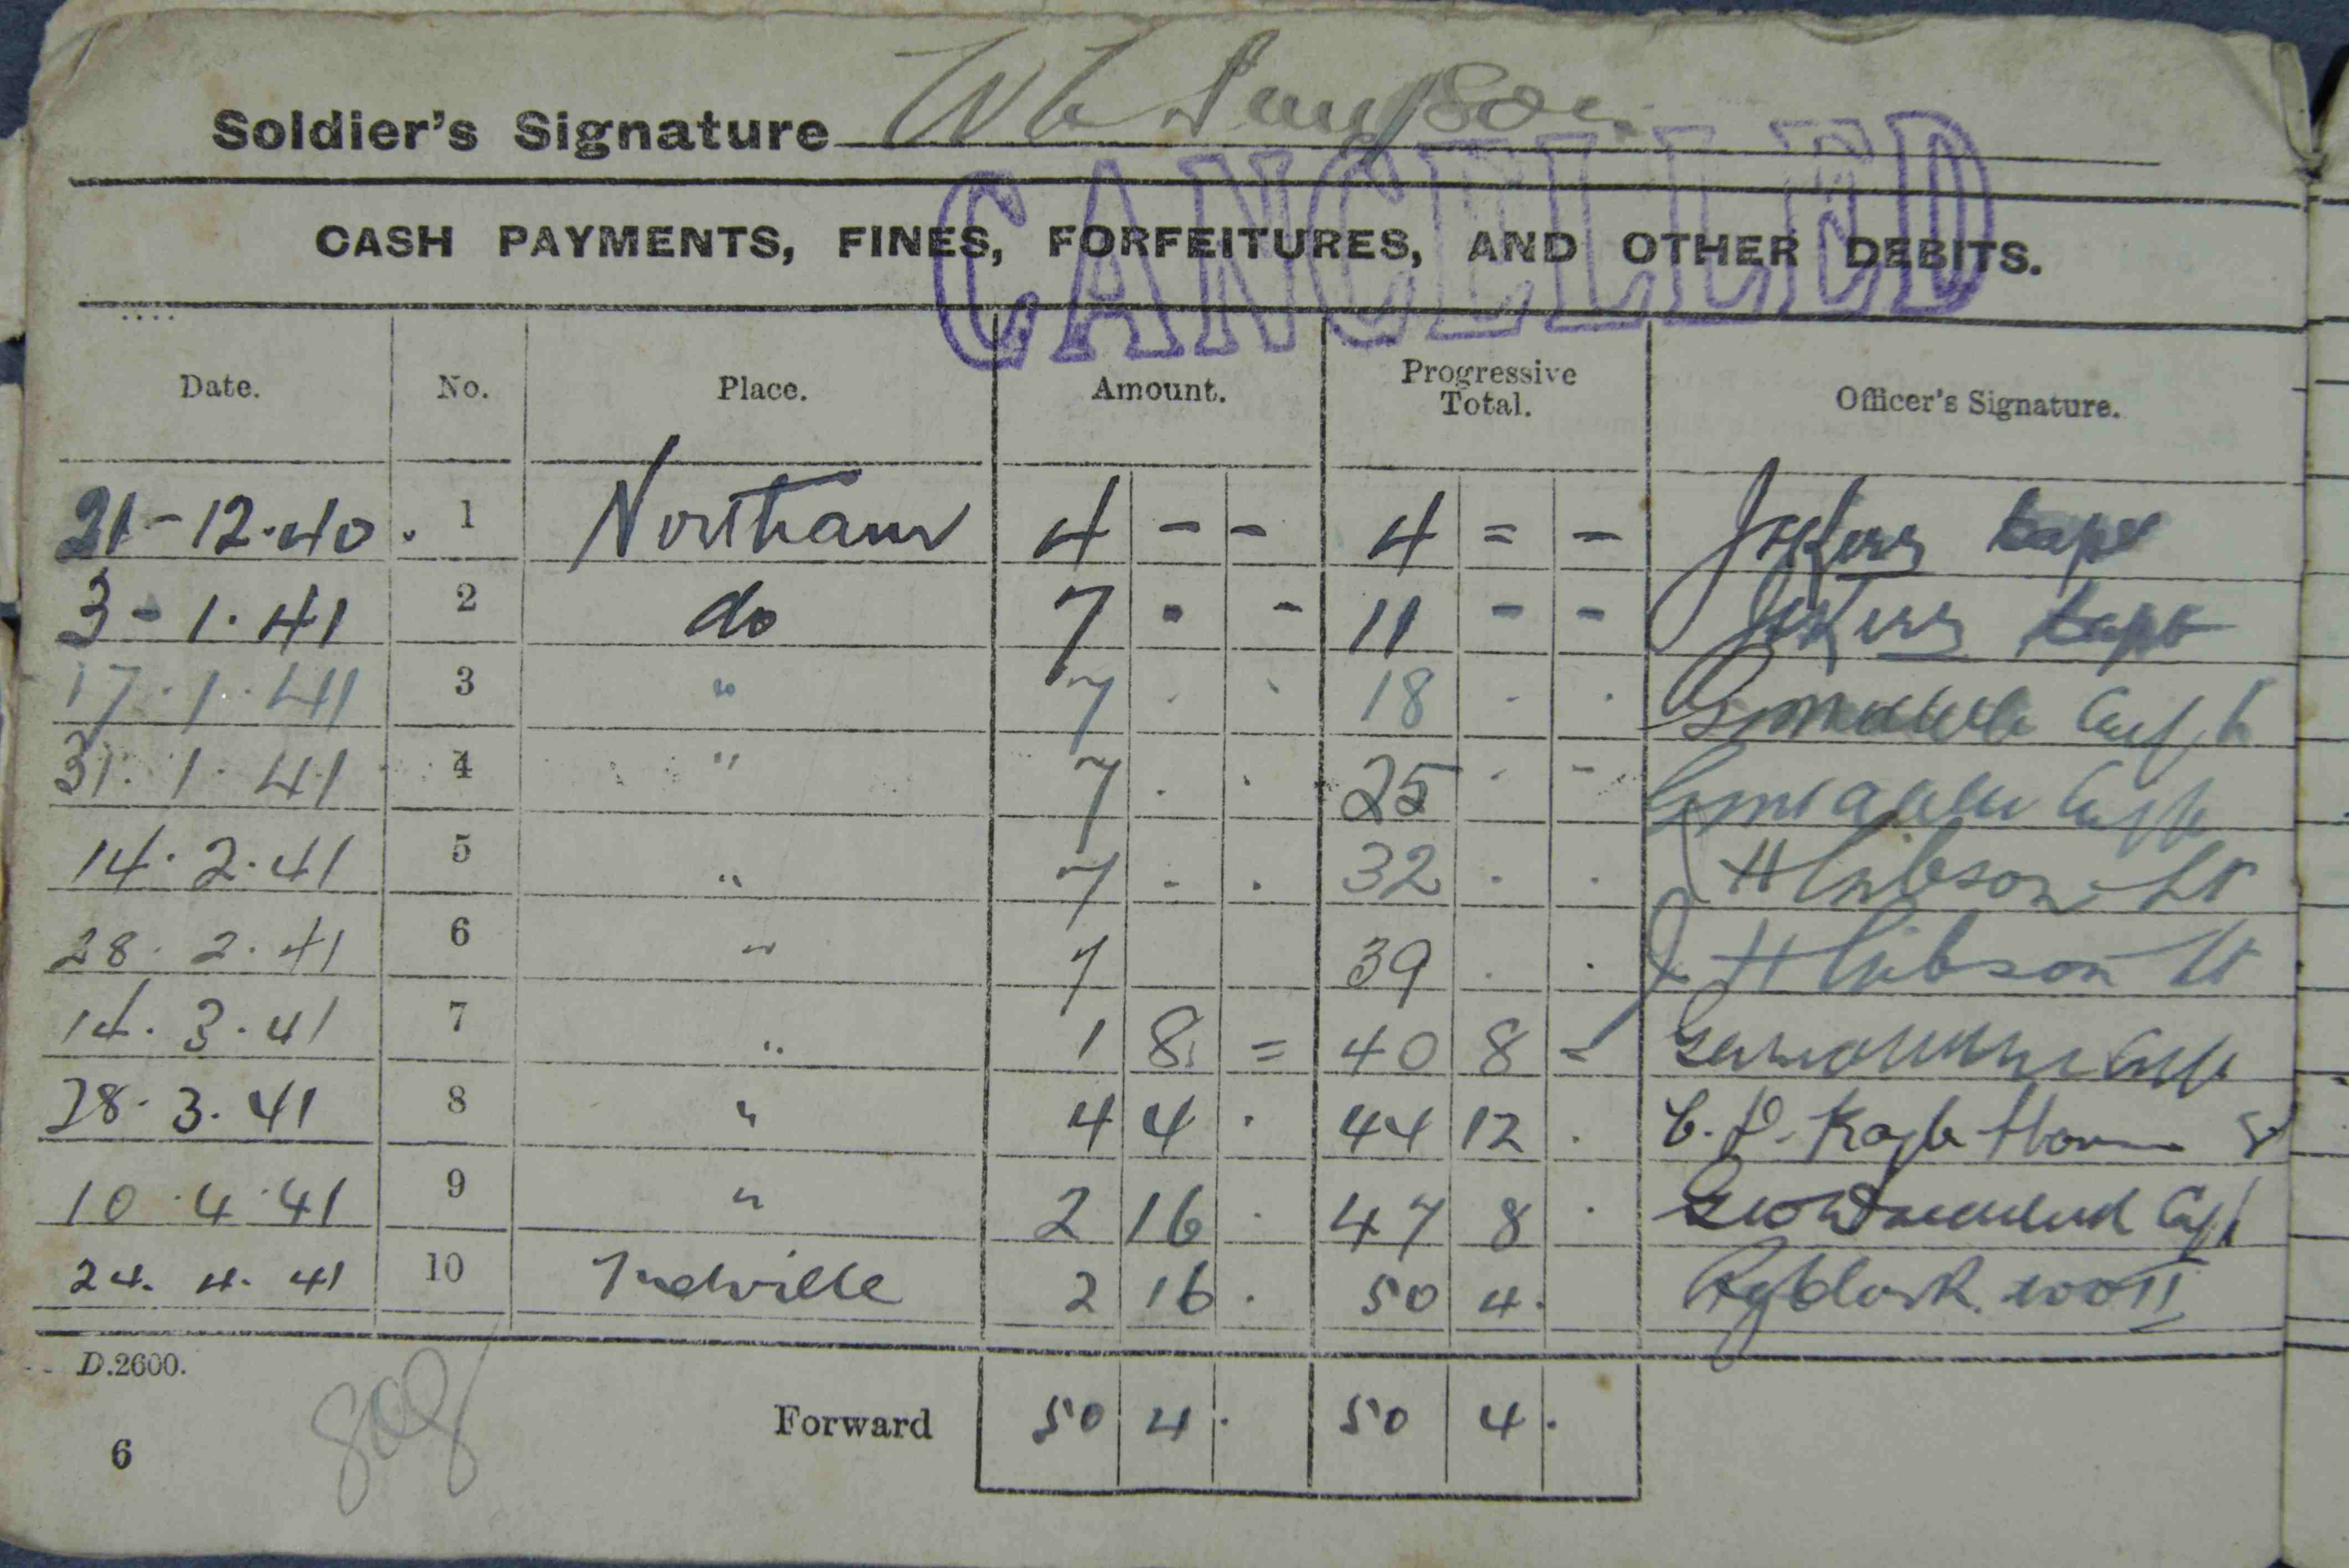 Soldier's Signature W Simpson
CANCELLED
CASH PAYMENTS, FINES, FORFEITURES, AND OTHER DEBITS.
Date. No. Place. Amount. Progressive Total. Officer's Signature.
21-12.40. 1 Northam 4 - - 4 = - Kerr Capt
3-1.41 2 do 7 - - 11 - - Kerr Capt
17.1.41 3 " 7 . . 18 . . Capt
31.1.41 4 " 7 . . 25 . - Capt
14.2.41 5 " 7 . . 32 . . J H Gibson Lt
28.2.41 6 " 7 39 . . J H Gibson Lt
14.3.41 7 " 1 8 = 40 8 = Capt
28.3.41 8 " 4 4 . 44 12 .
10.4.41 9 " 2 16 . 47 8 . Capt
24.4.41 10 2 16 . 50 4 . Clark. WOII
D.2600.
Forward 50 4 . 50 4 .
6